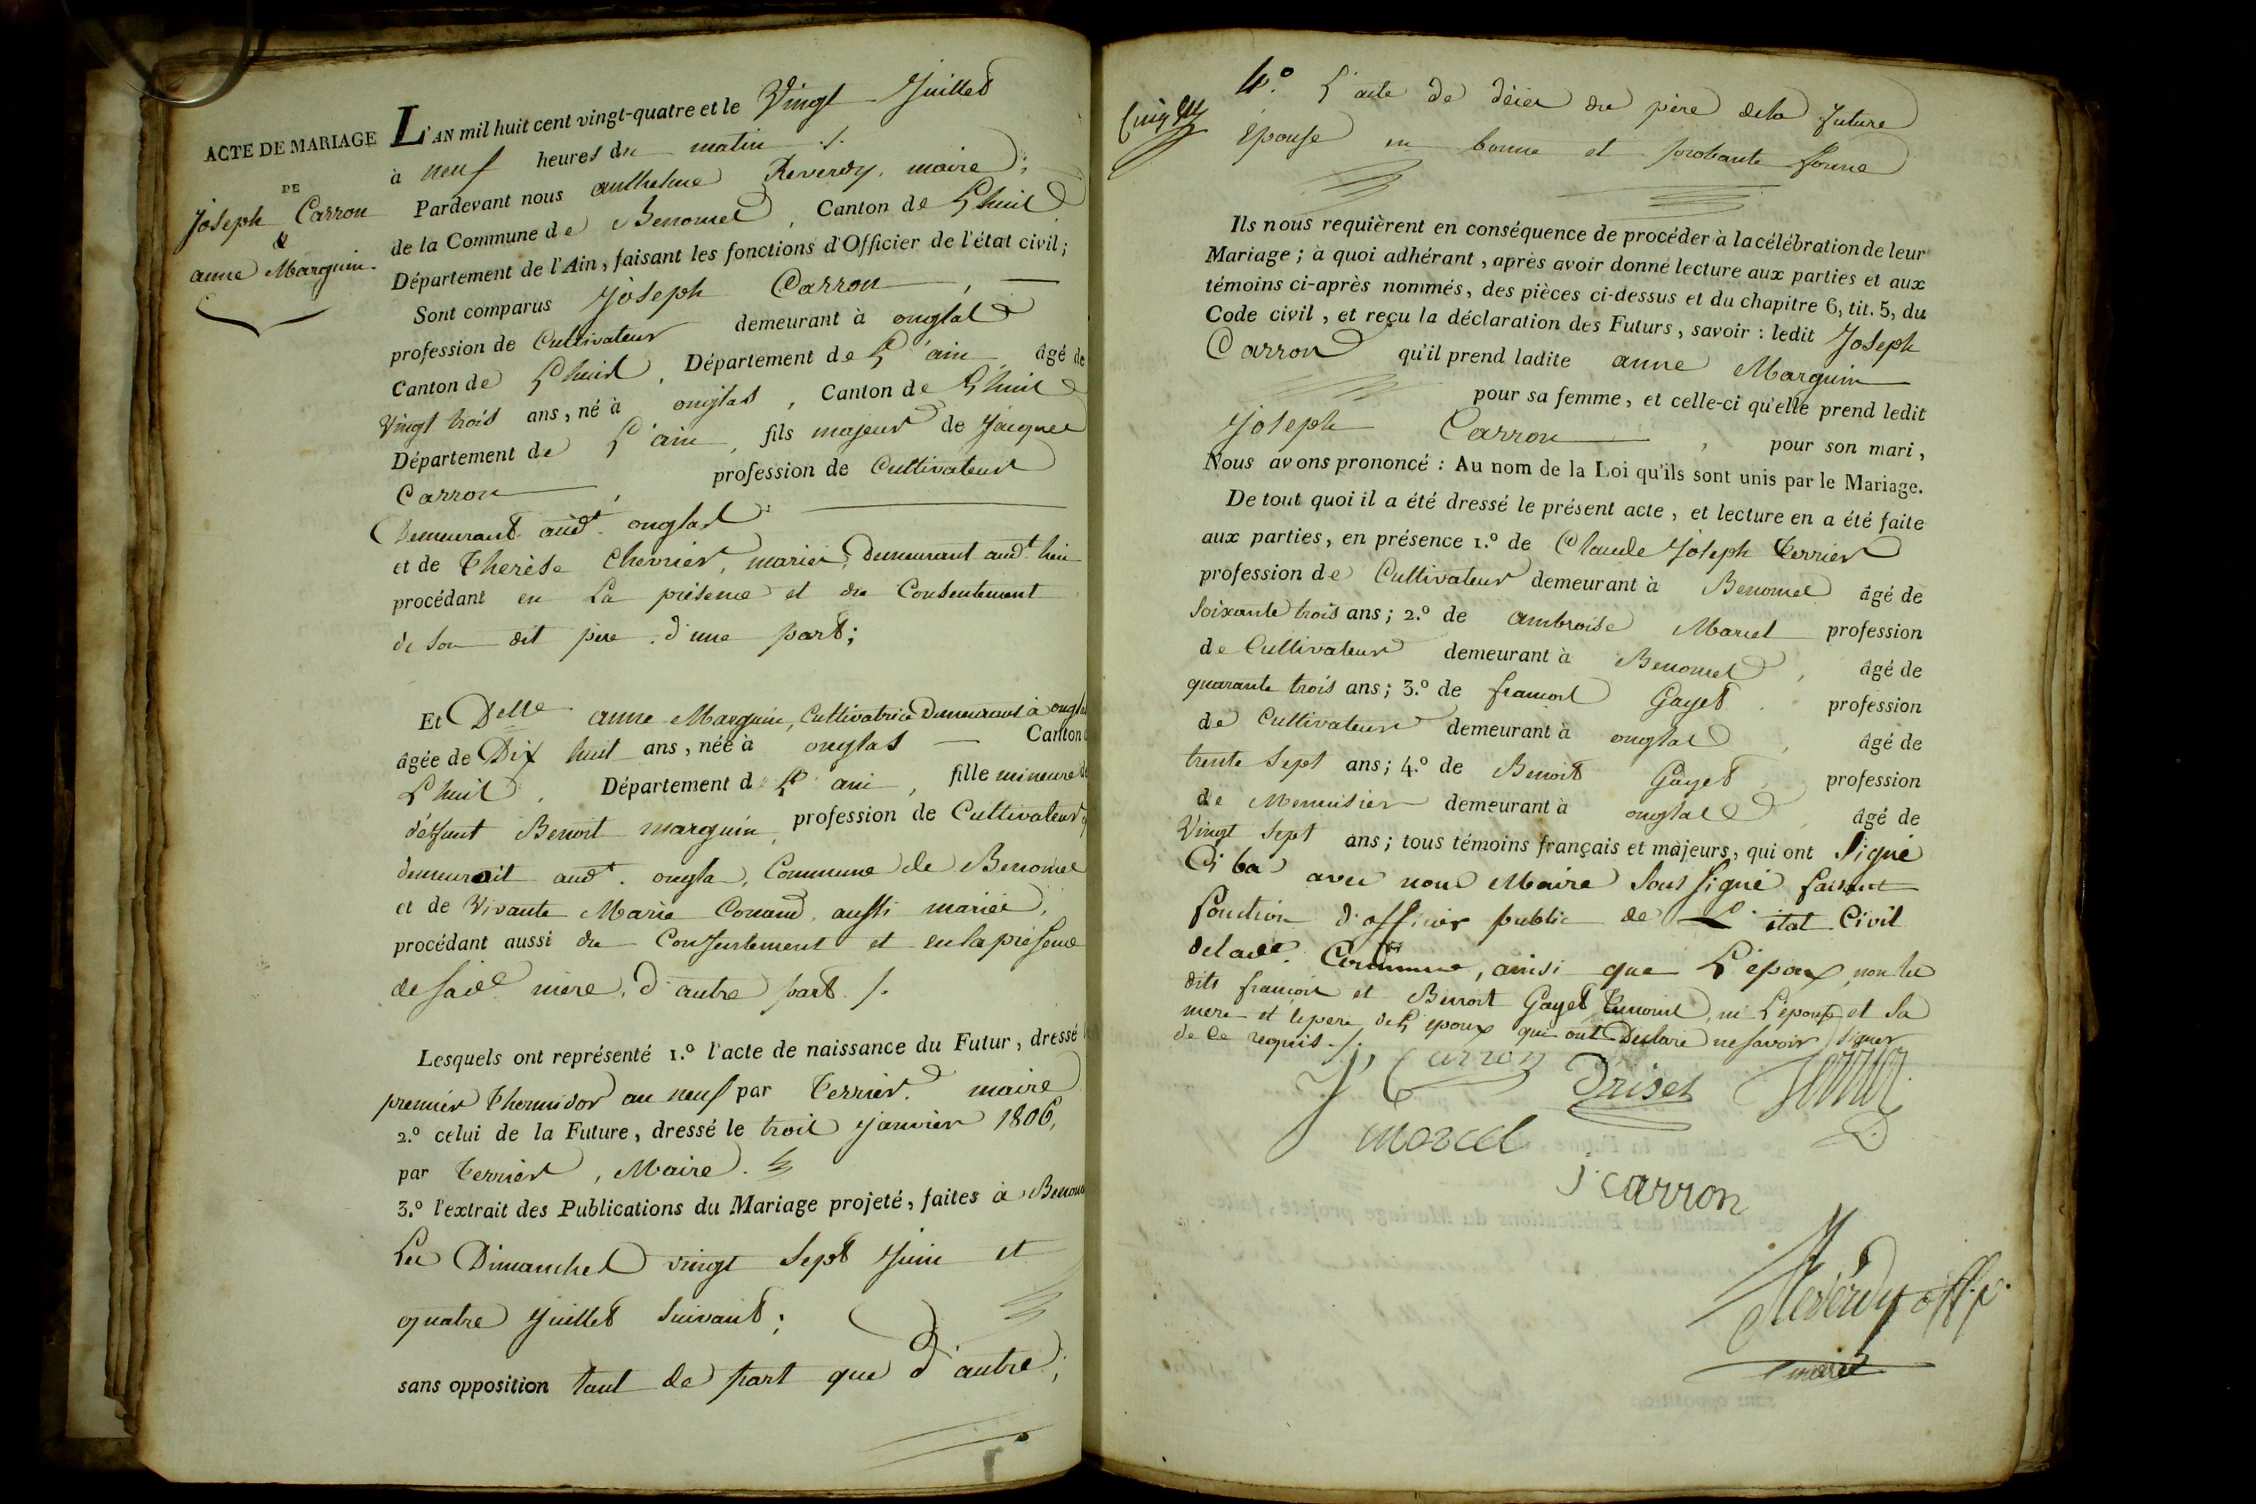 ACTE DE MARIAGE
DE
Joseph Carron
&
anne Marguin.
L'AN mil huit cent vingt-quatre et le Vingt Juillet
à neuf heures du matin ./.
Pardevant nous anthelme Reverdy, maire,
de la Commune de Benonce, Canton de Lhuis
Département de l'Ain, faisant les fonctions d'Officier de l'état civil;
Sont comparus Joseph Carron,
profession de Cultivateur demeurant à onglas
Canton de Lhuis, Département de L'ain, âgé de
Vingt trois ans, né à onglas, Canton de Lhuis
Département de L'ain, fils majeur de Jacques
Carron, profession de Cultivateur
Demeurant aud.t onglas
et de Therèse Chevrier, mariés, Demeurant aud.t lieu
procédant en La présence et du Consentement
de son dit père. d'une part;
Et Delle anne Marguin, Cultivatrice Demeurant à onglas
âgée de Dix huit ans, née à onglas Canton de
Lhuis, Département de L'ain, fille mineure de
défunt Benoit marguin, profession de Cultivateur,
demeurait aud.t onglas, Commune de Benonce
et de Vivante Marie Conand, aussi mariés,
procédant aussi du Consentement et en la présence
de sade mère, d'autre part ./.
Lesquels ont représenté 1.º l'acte de naissance du Futur, dressé le
premier Thermidor an neuf par Terrier. maire
2.º celui de la Future, dressé le trois Janvier 1806,
par Terrier, Maire.
3.º l'extrait des Publications du Mariage projeté, faites à Benonce
Les Dimanches vingt Sept Juin et
quatre Juillet suivant;
sans opposition tant de part que d'autre;
Cinq
4.º L'acte de décès du père de la future
Epouse en bonne et probante forme
Ils nous requièrent en conséquence de procéder à la célébration de leur
Mariage; à quoi adhérant, après avoir donné lecture aux parties et aux
témoins ci-après nommés, des pièces ci-dessus et du chapitre 6, tit. 5, du
Code civil, et reçu la déclaration des Futurs, savoir: ledit Joseph
Carron qu'il prend ladite anne Marguin
pour sa femme, et celle-ci qu'elle prend ledit
Joseph Carron, pour son mari,
Nous avons prononcé: Au nom de la Loi qu'ils sont unis par le Mariage.
De tout quoi il a été dressé le présent acte, et lecture en a été faite
aux parties, en présence 1.º de Claude Joseph Terrier
profession de Cultivateur demeurant à Benonce âgé de
soixante trois ans; 2.º de ambroise Marcel profession
de Cultivateur demeurant à Benonce, âgé de
quarante trois ans; 3.º de francois Gayet. profession
de Cultivateur demeurant à onglas, âgé de
trente Sept ans; 4.º de Benoit Gayet, profession
de Menuisier demeurant à onglas, âgé de
Vingt Sept ans; tous témoins français et majeurs, qui ont Signé
Ci bas avec nous Maire Sous Signé faisant
fonction d'officier public de L'état Civil
de lade. Commune, ainsi que L'époux, non les
dits francois et Benoit Gayet temoins, ni L'épouse et sa
mere et le pere de L'époux qui ont Declaré ne savoir signer
de ce requis ./.
J. Carron Driset Terrier
morcel
J carron
Reverdy off. p.
maire